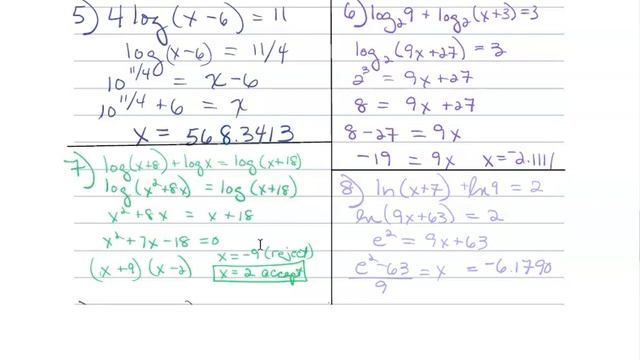 5) 4 log (x-6) = 11
log (x-6) = 11/4
10^11/4 = x-6
10^11/4 + 6 = x
x = 568.3413
6) log₂9 + log₂(x+3) = 3
log₂(9x+27) = 3
2³ = 9x+27
8 = 9x+27
8-27 = 9x
-19 = 9x x = -2.1111
7) log(x+8) + log x = log(x+18)
log(x²+8x) = log(x+18)
x²+8x = x+18
x²+7x-18 = 0
(x+9)(x-2)
x = -9 (reject)
x = 2 accept
8) ln(x+7) + ln 9 = 2
ln(9x+63) = 2
e² = 9x+63
e²-63/9 = x = -6.1790